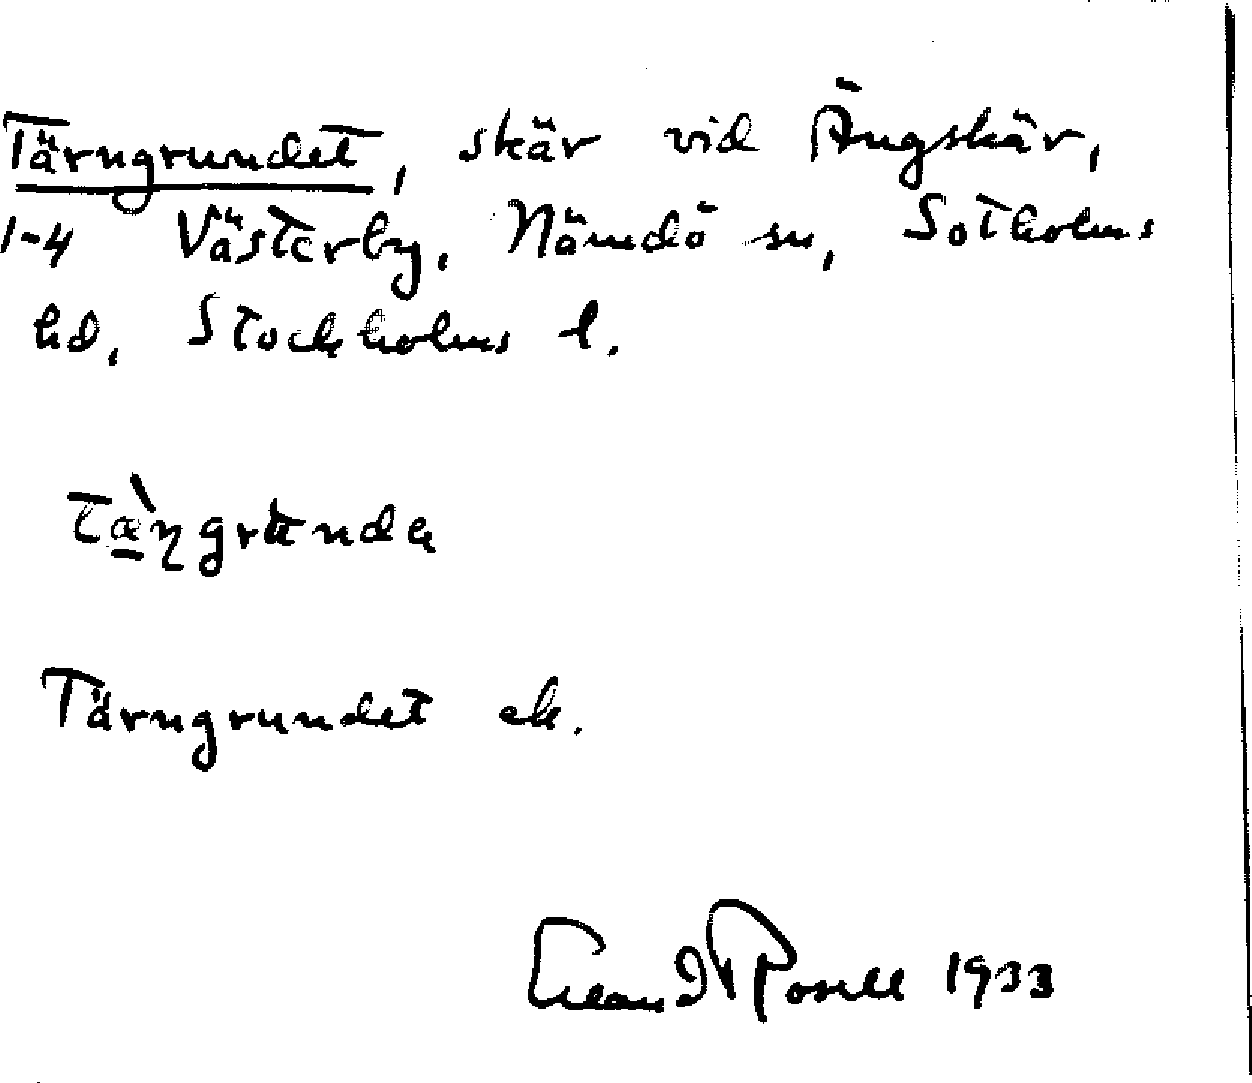 Tärngrundet, skär vid Ängskär,
1-4 Västerby, Nämdö sn, Sotholms
hd, Stockholms l.
Tæ̱̀ŋgrunda
Tärngrundet ek.
Rosell 1933